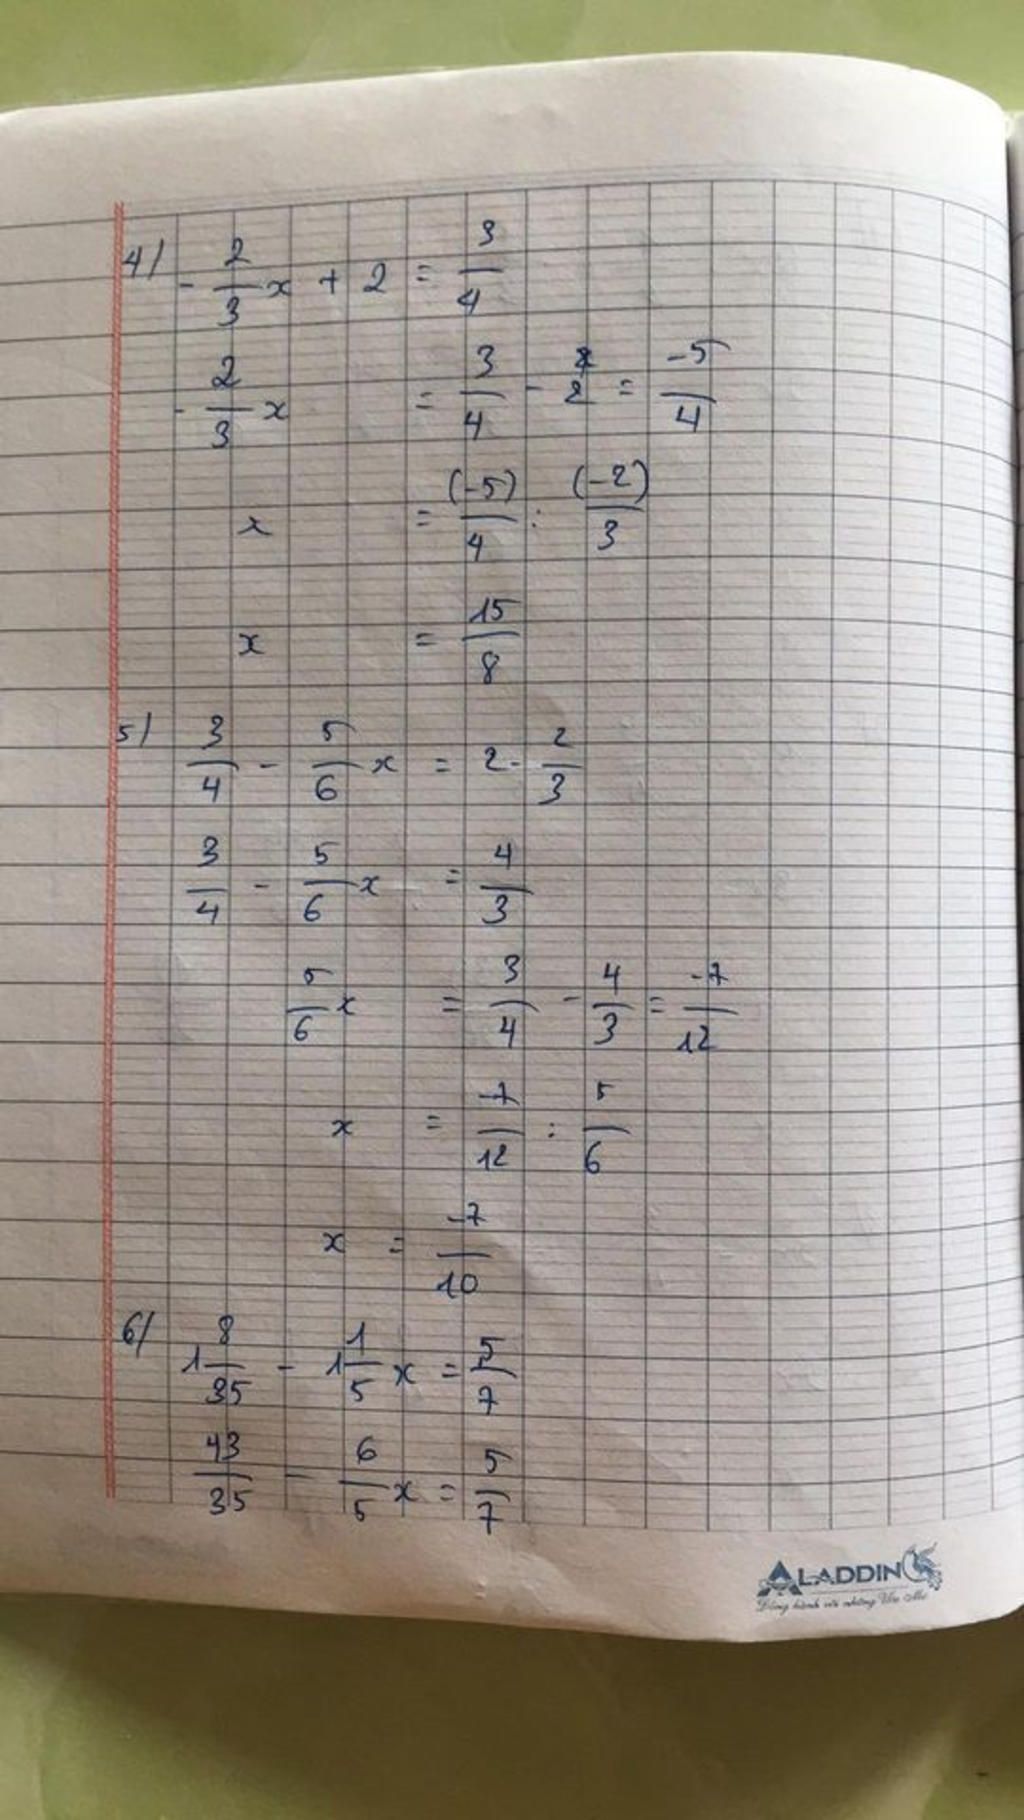 4/ -2/3 x + 2 = 3/4
-2/3 x = 3/4 - 2 = -5/4
x = (-5)/4 : (-2)/3
x = 15/8
5/ 3/4 - 5/6 x = 2 - 2/3
3/4 - 5/6 x = 4/3
5/6 x = 3/4 - 4/3 = -7/12
x = -7/12 : 5/6
x = -7/10
6/ 1 8/35 - 1 1/5 x = 5/7
43/35 - 6/5 x = 5/7
ALADDIN